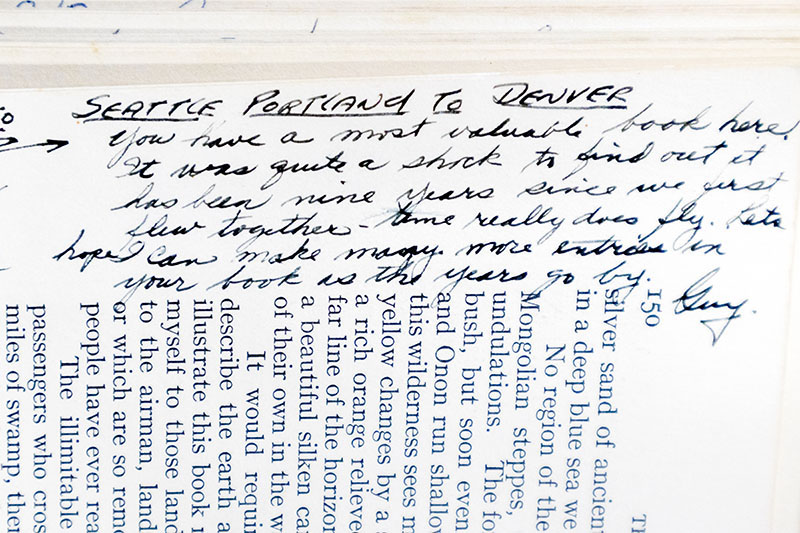 SEATTLE PORTLAND TO DENVER
You have a most valuable book here.
It was quite a shock to find out it
has been nine years since we first
flew together - time really does fly. Lets
hope I can make many more entries in
your book as the years go by.
Guy.
150
silver sand of ancient
in a deep blue sea we
No region of the
Mongolian steppes,
undulations. The fo
bush, but soon even
and Onon run shallow
this wilderness sees m
yellow changes by a
a rich orange relieve
far line of the horizon
a beautiful silken ca
of their own in the w
It would requir
describe the earth a
illustrate this book
myself to those land
to the airman, land
or which are so remo
people have ever rea
The illimitable
passengers who cros
miles of swamp, ther